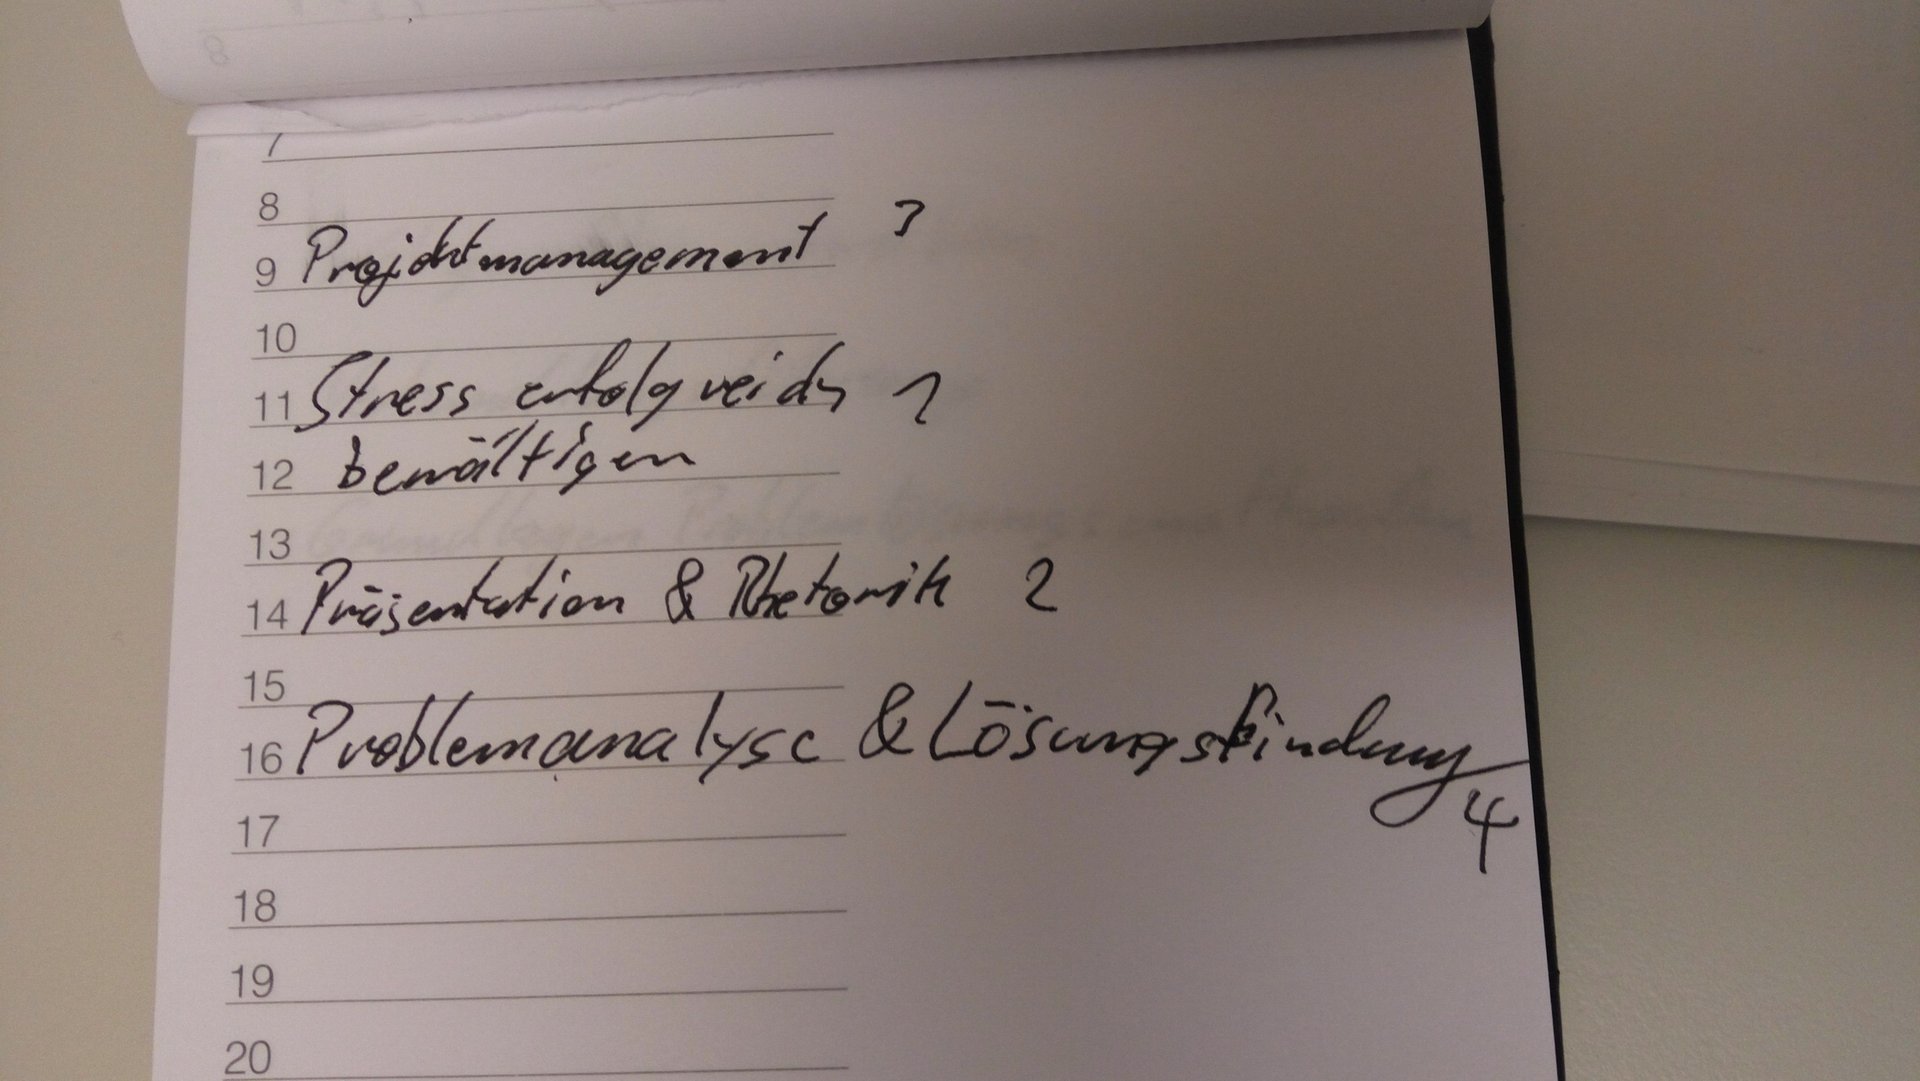 8
7
8
9 Projektmanagement 3
10
11 Stress erfolgreich 1
12 bewältigen
13
14 Präsentation & Rhetorik 2
15
16 Problemanalyse & Lösungsfindung
4
17
18
19
20